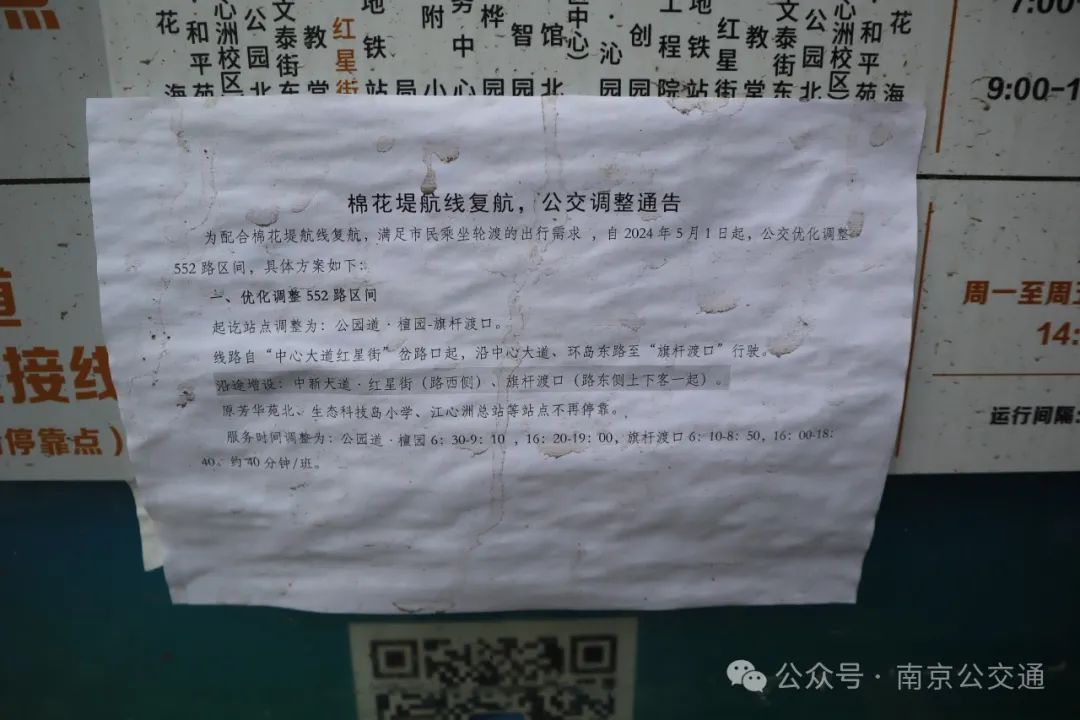 花
和平苑
海
心洲校区
公园北
文泰街东
教堂
红星街
地铁站
局
附小
务中心
桦园
智园
馆北
中心)
·沁园
创园
工程院
地铁站
红星街
教堂
文泰街东
公园北
心洲校区)
和平苑
花
海
7:00-
9:00-1
棉花堤航线复航，公交调整通告
为配合棉花堤航线复航，满足市民乘坐轮渡的出行需求，自2024年5月1日起，公交优化调整
552路区间，具体方案如下：
一、优化调整552路区间
起讫站点调整为：公园道·檀园-旗杆渡口。
线路自“中心大道红星街”岔路口起，沿中心大道、环岛东路至“旗杆渡口”行驶。
沿途增设：中新大道·红星街（路西侧）、旗杆渡口（路东侧上下客一起）。
原芳华苑北、生态科技岛小学、江心洲总站等站点不再停靠。
服务时间调整为：公园道·檀园6：30-9：10，16：20-19：00，旗杆渡口6：10-8：50，16：00-18：
40。约40分钟/班。
道
接线
停靠点）
周一至周五
14:
运行间隔:
公众号·南京公交通